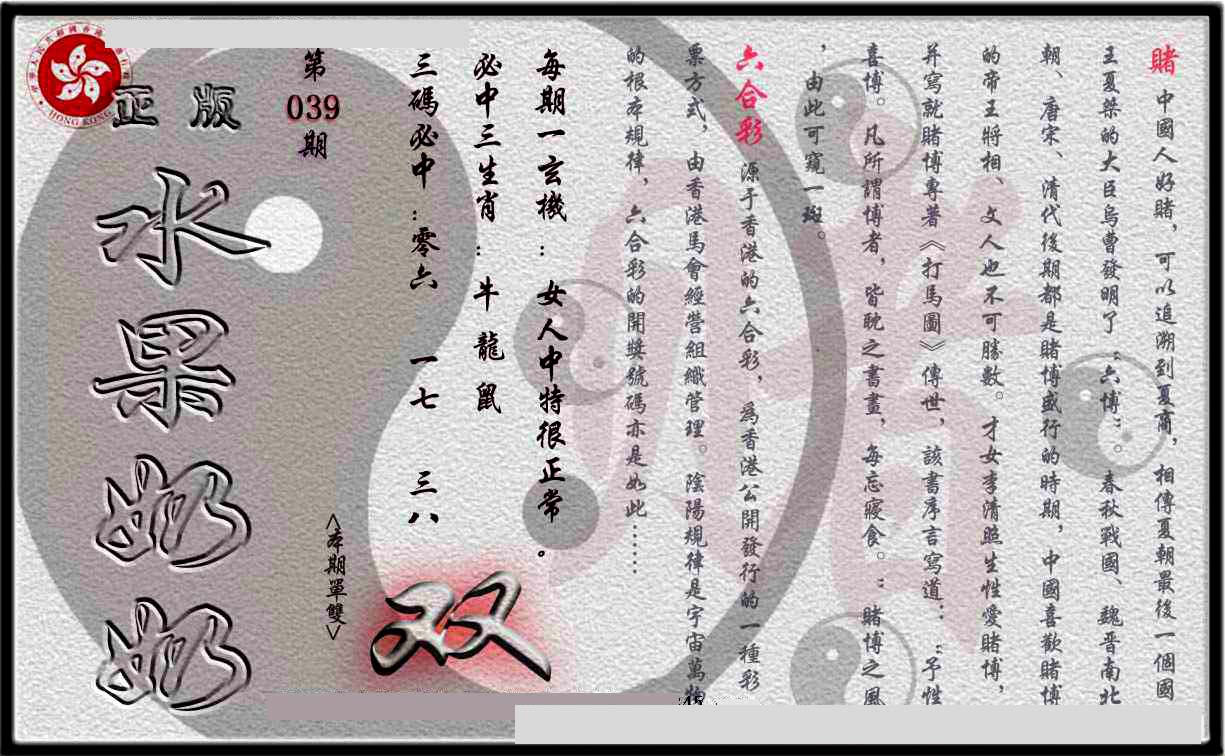 賭 中國人好賭，可以追溯到夏商，相傳夏朝最後一個國
王夏桀的大臣烏曹發明了“六博”。春秋戰國、魏晉南北
朝、唐宋、清代後期都是賭博盛行的時期，中國喜歡賭博
的帝王將相、文人也不可勝數。才女李清照生性愛賭博，
并寫就賭博專著《打馬圖》傳世，該書序言寫道：“予性
喜博。凡所謂博者，皆耽之書畫，每忘寢食。”賭博之風
，由此可窺一斑。
六合彩 源于香港的六合彩，為香港公開發行的一種彩
票方式，由香港馬會經營組織管理。陰陽規律是宇宙萬物
的根本規律，六合彩的開獎號碼亦是如此……
每期一玄機：女人中特很正常。
必中三生肖：牛 龍 鼠
三碼必中：零六 一七 三八
<本期單雙>
双
第
039
期
正版
水果奶奶
HONG KONG